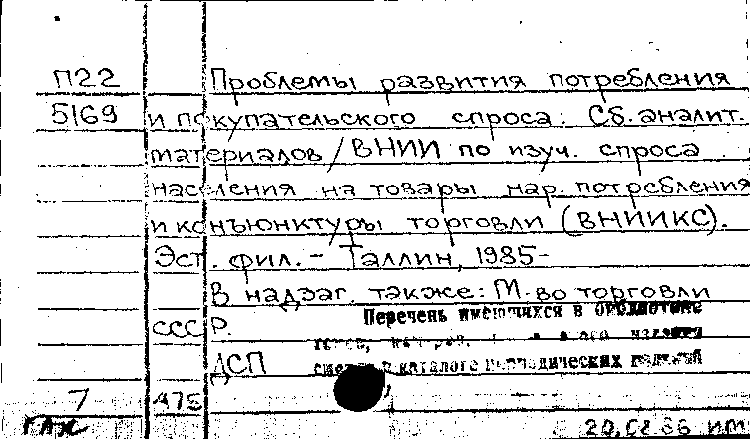 П22 Проблемы развития потребления
5169 и покупательского спроса: Сб. аналит.
материалов / ВНИИ по изуч. спроса
населения на товары нар. потребления
и конъюнктуры торговли (ВНИИКС).
Эст. фил. - Таллин, 1985-
В надзаг. также: М-во торговли
СССР.
Перечень имеющихся в библиотеке
ДСП
каталоге периодических изданий
7 475